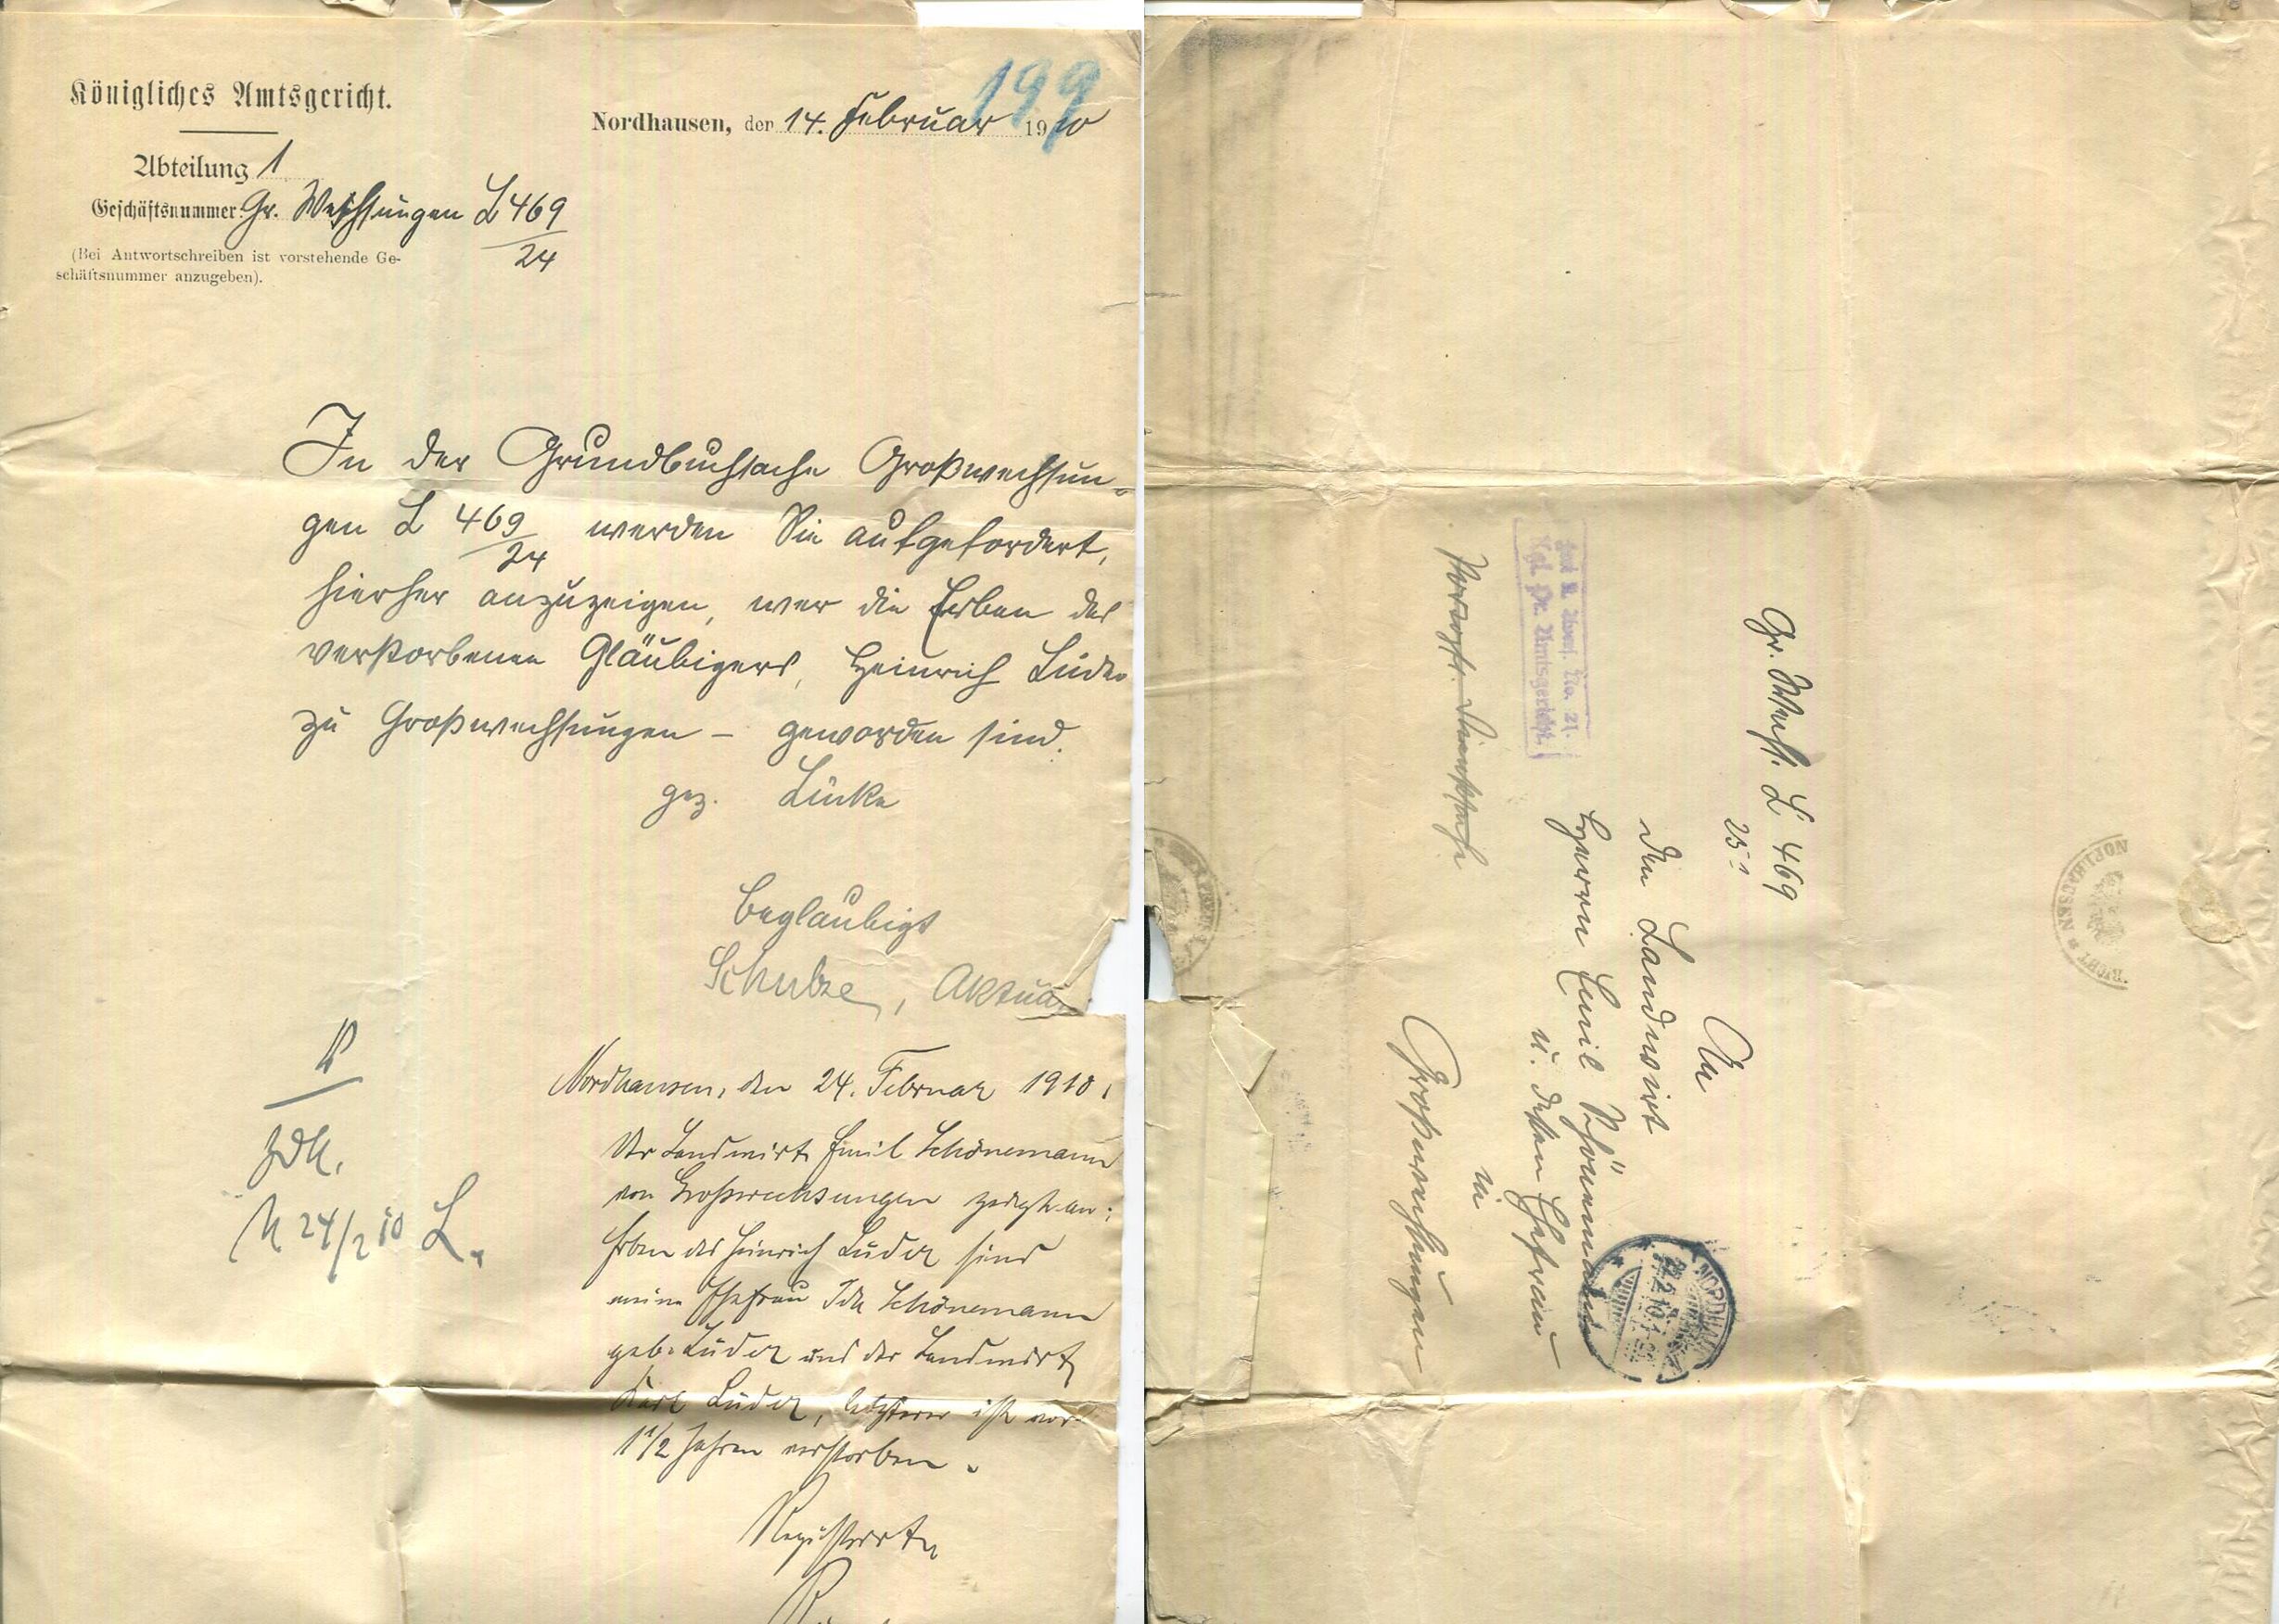 199
Königliches Amtsgericht.
Nordhausen, den 14. Februar 1910
Abteilung 1
Geschäftsnummer: Gr. Wechsungen L 469
24
(Bei Antwortschreiben ist vorstehende Ge-
schäftsnummer anzugeben).
In der Grundbuchsache Großwechsun-
gen L 469
24 werden Sie aufgefordert,
hierher anzuzeigen, wer die Erben des
verstorbenen Gläubigers, Heinrich Lüder
zu Großwechsungen – geworden sind.
gez. Lücke
Beglaubigt
Schulze, Aktuar
Nordhausen, den 24. Februar 1910.
Der Landwirt Emil Schönemann
von Großwechsungen zeigt an:
Erben des Heinrich Lüder sind
meine Ehefrau Ida Schönemann
geb. Lüder und der Landwirt
Karl Lüder, letzterer ist vor
1 1/2 Jahren verstorben.
zdA.
N 24/2 10 L.
Gr. Wechs. L 469
25
An
den Landwirt
Herrn Emil Schönemann
u. dessen Ehefrau
in
Großwechsungen
frei lt. Avers. No. 21.
Kgl. Pr. Amtsgericht.
NORDHAUSEN
NORDHAUSEN